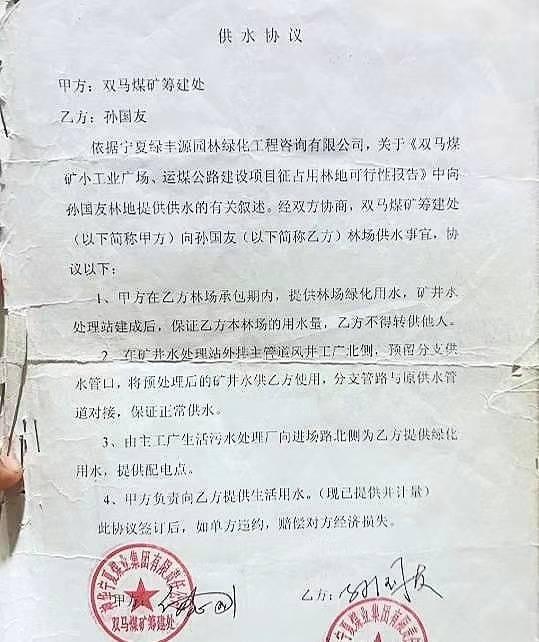 供水协议
甲方：双马煤矿筹建处
乙方：孙国友
依据宁夏绿丰源园林绿化工程咨询有限公司，关于《双马煤
矿小工业广场、运煤公路建设项目征占用林地可行性报告》中向
孙国友林地提供供水的有关叙述。经双方协商，双马煤矿筹建处
（以下简称甲方）向孙国友（以下简称乙方）林场供水事宜，协
议以下：
1、甲方在乙方林场承包期内，提供林场绿化用水，矿井水
处理站建成后，保证乙方本林场的用水量，乙方不得转供他人。
2、在矿井水处理站外排主管道风井工广北侧，预留分支供
水管口，将预处理后的矿井水供乙方使用，分支管路与原供水管
道对接，保证正常供水。
3、由主工广生活污水处理厂向进场路北侧为乙方提供绿化
用水，提供配电点。
4、甲方负责向乙方提供生活用水。（现已提供并计量）
此协议签订后，如单方违约，赔偿对方经济损失。
甲方：
乙方：孙国友
宁夏煤业集团有限责任公司
双马煤矿筹建处
宁夏煤业集团有限